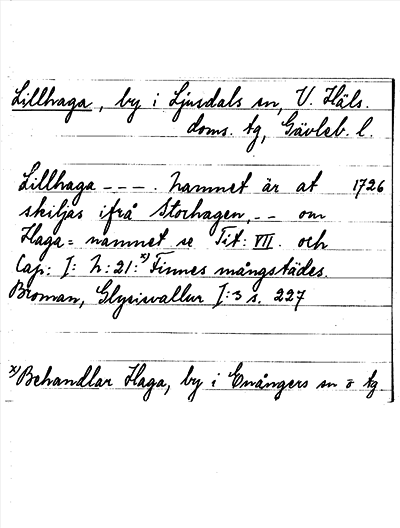 Lillhaga, by i Ljusdals sn, V. Häls.
doms. tg, Gävleb. l.
Lillhaga - - - . Namnet är at 1726
skiljas ifrå Storhagen, - - om
Haga = namnet se Tit: VII. och
Cap: I: N: 21: x) Finnes mångstädes.
Broman, Glysisvallur I:3 s. 227
x) Behandlar Haga, by i Enångers sn o tg.